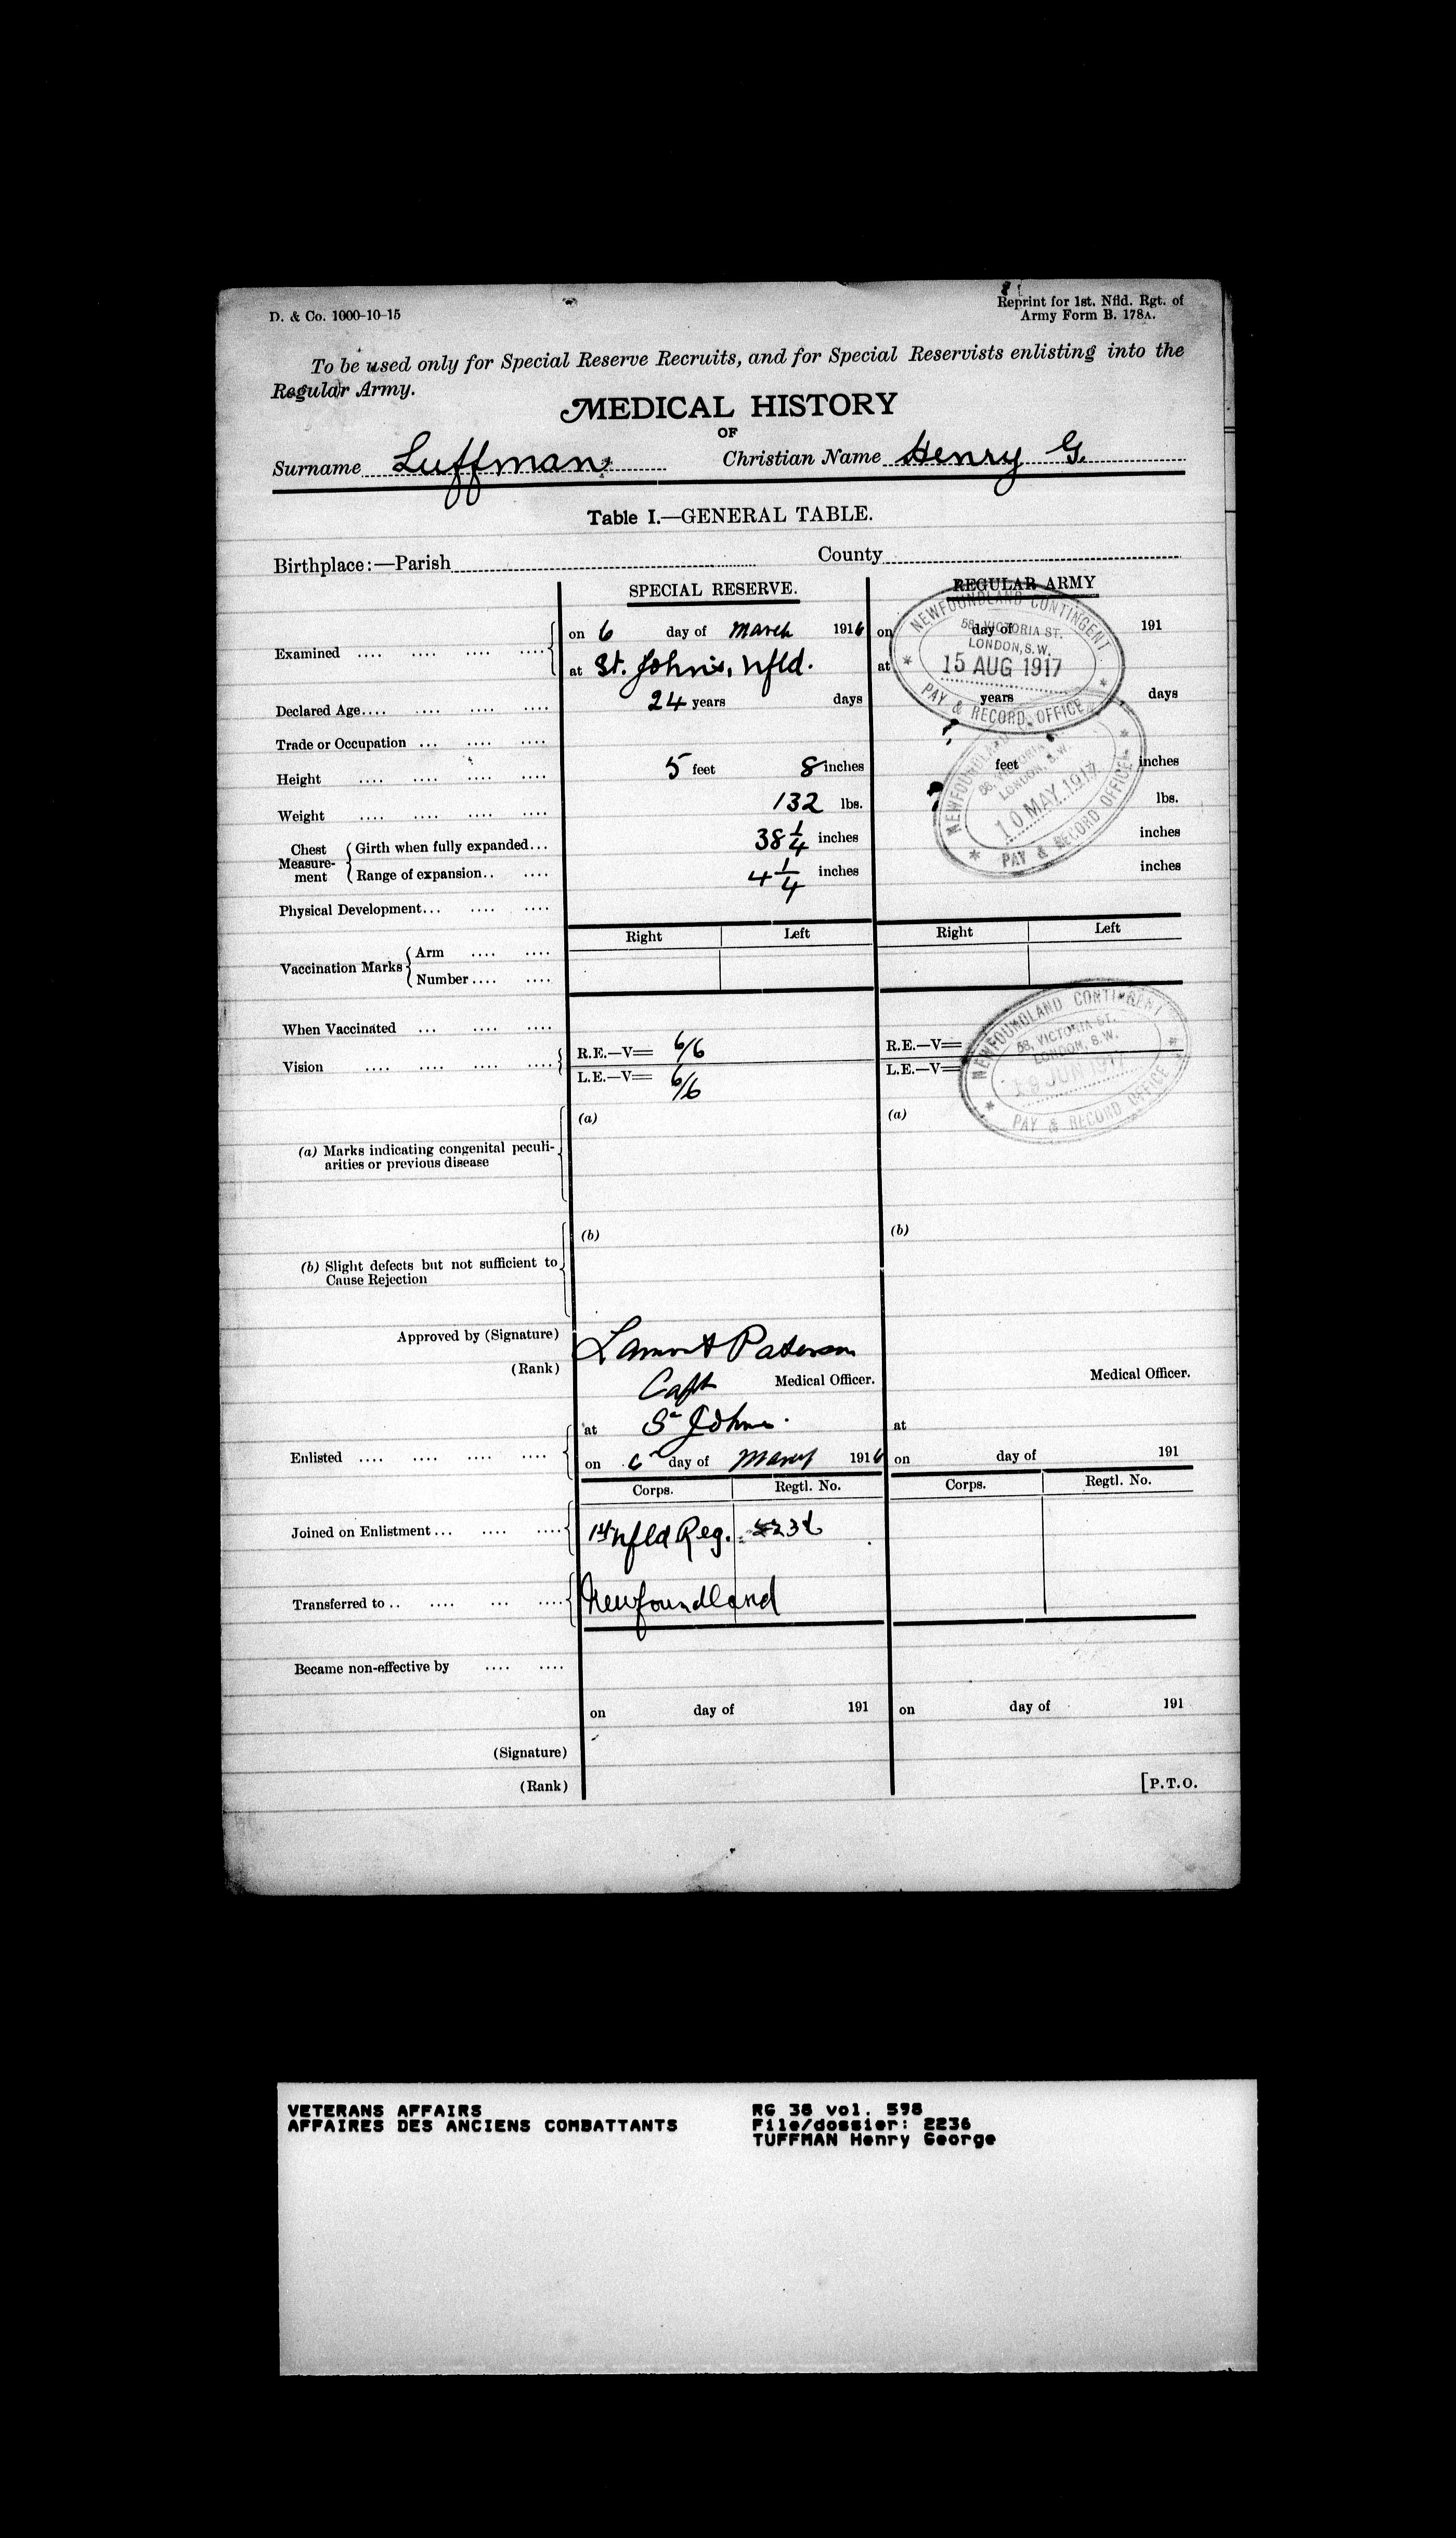 D. & Co. 1000-10-15
Reprint for 1st. Nfld. Rgt. of
Army Form B. 178A.
To be used only for Special Reserve Recruits, and for Special Reservists enlisting into the
Regular Army.
MEDICAL HISTORY
OF
Surname Luffman Christian Name Henry G.
Table I.—GENERAL TABLE.
Birthplace:—Parish County
SPECIAL RESERVE. REGULAR ARMY
Examined .... .... .... .... on 6 day of March 1916 on day of 191
at St. John's, Nfld. at
Declared Age.... .... .... .... 24 years days years days
Trade or Occupation ... .... ....
Height .... .... .... .... 5 feet 8 inches feet inches
Weight .... .... .... .... 132 lbs. lbs.
Chest Measurement Girth when fully expanded... 38 1/4 inches inches
Range of expansion.. .... 4 1/4 inches inches
Physical Development... .... ....
Right Left Right Left
Vaccination Marks Arm .... ....
Number.... ....
When Vaccinated ... .... ....
Vision .... .... .... .... R.E.—V= 6/6 R.E.—V=
L.E.—V= 6/6 L.E.—V=
(a) (a)
(a) Marks indicating congenital peculi-
arities or previous disease
(b) (b)
(b) Slight defects but not sufficient to
Cause Rejection
Approved by (Signature) Lamont Paterson
(Rank) Capt Medical Officer. Medical Officer.
at St Johns. at
Enlisted .... .... .... .... on 6 day of March 1916 on day of 191
Corps. Regtl. No. Corps. Regtl. No.
Joined on Enlistment... .... .... 1st Nfld Reg.
Transferred to .. .... ... .... Newfoundland
Became non-effective by .... ....
on day of 191 on day of 191
(Signature)
(Rank)
[P.T.O.
NEWFOUNDLAND CONTINGENT
58, VICTORIA ST.
LONDON, S.W.
15 AUG 1917
PAY & RECORD OFFICE
NEWFOUNDLAND
58, VICTORIA
LONDON, S.W.
10 MAY 1917
PAY & RECORD OFFICE
NEWFOUNDLAND CONTINGENT
58, VICTORIA ST.
LONDON, S.W.
JUN 1917
PAY & RECORD OFFICE
VETERANS AFFAIRS
AFFAIRES DES ANCIENS COMBATTANTS
RG 38 vol. 598
File/dossier: 2236
TUFFMAN Henry George